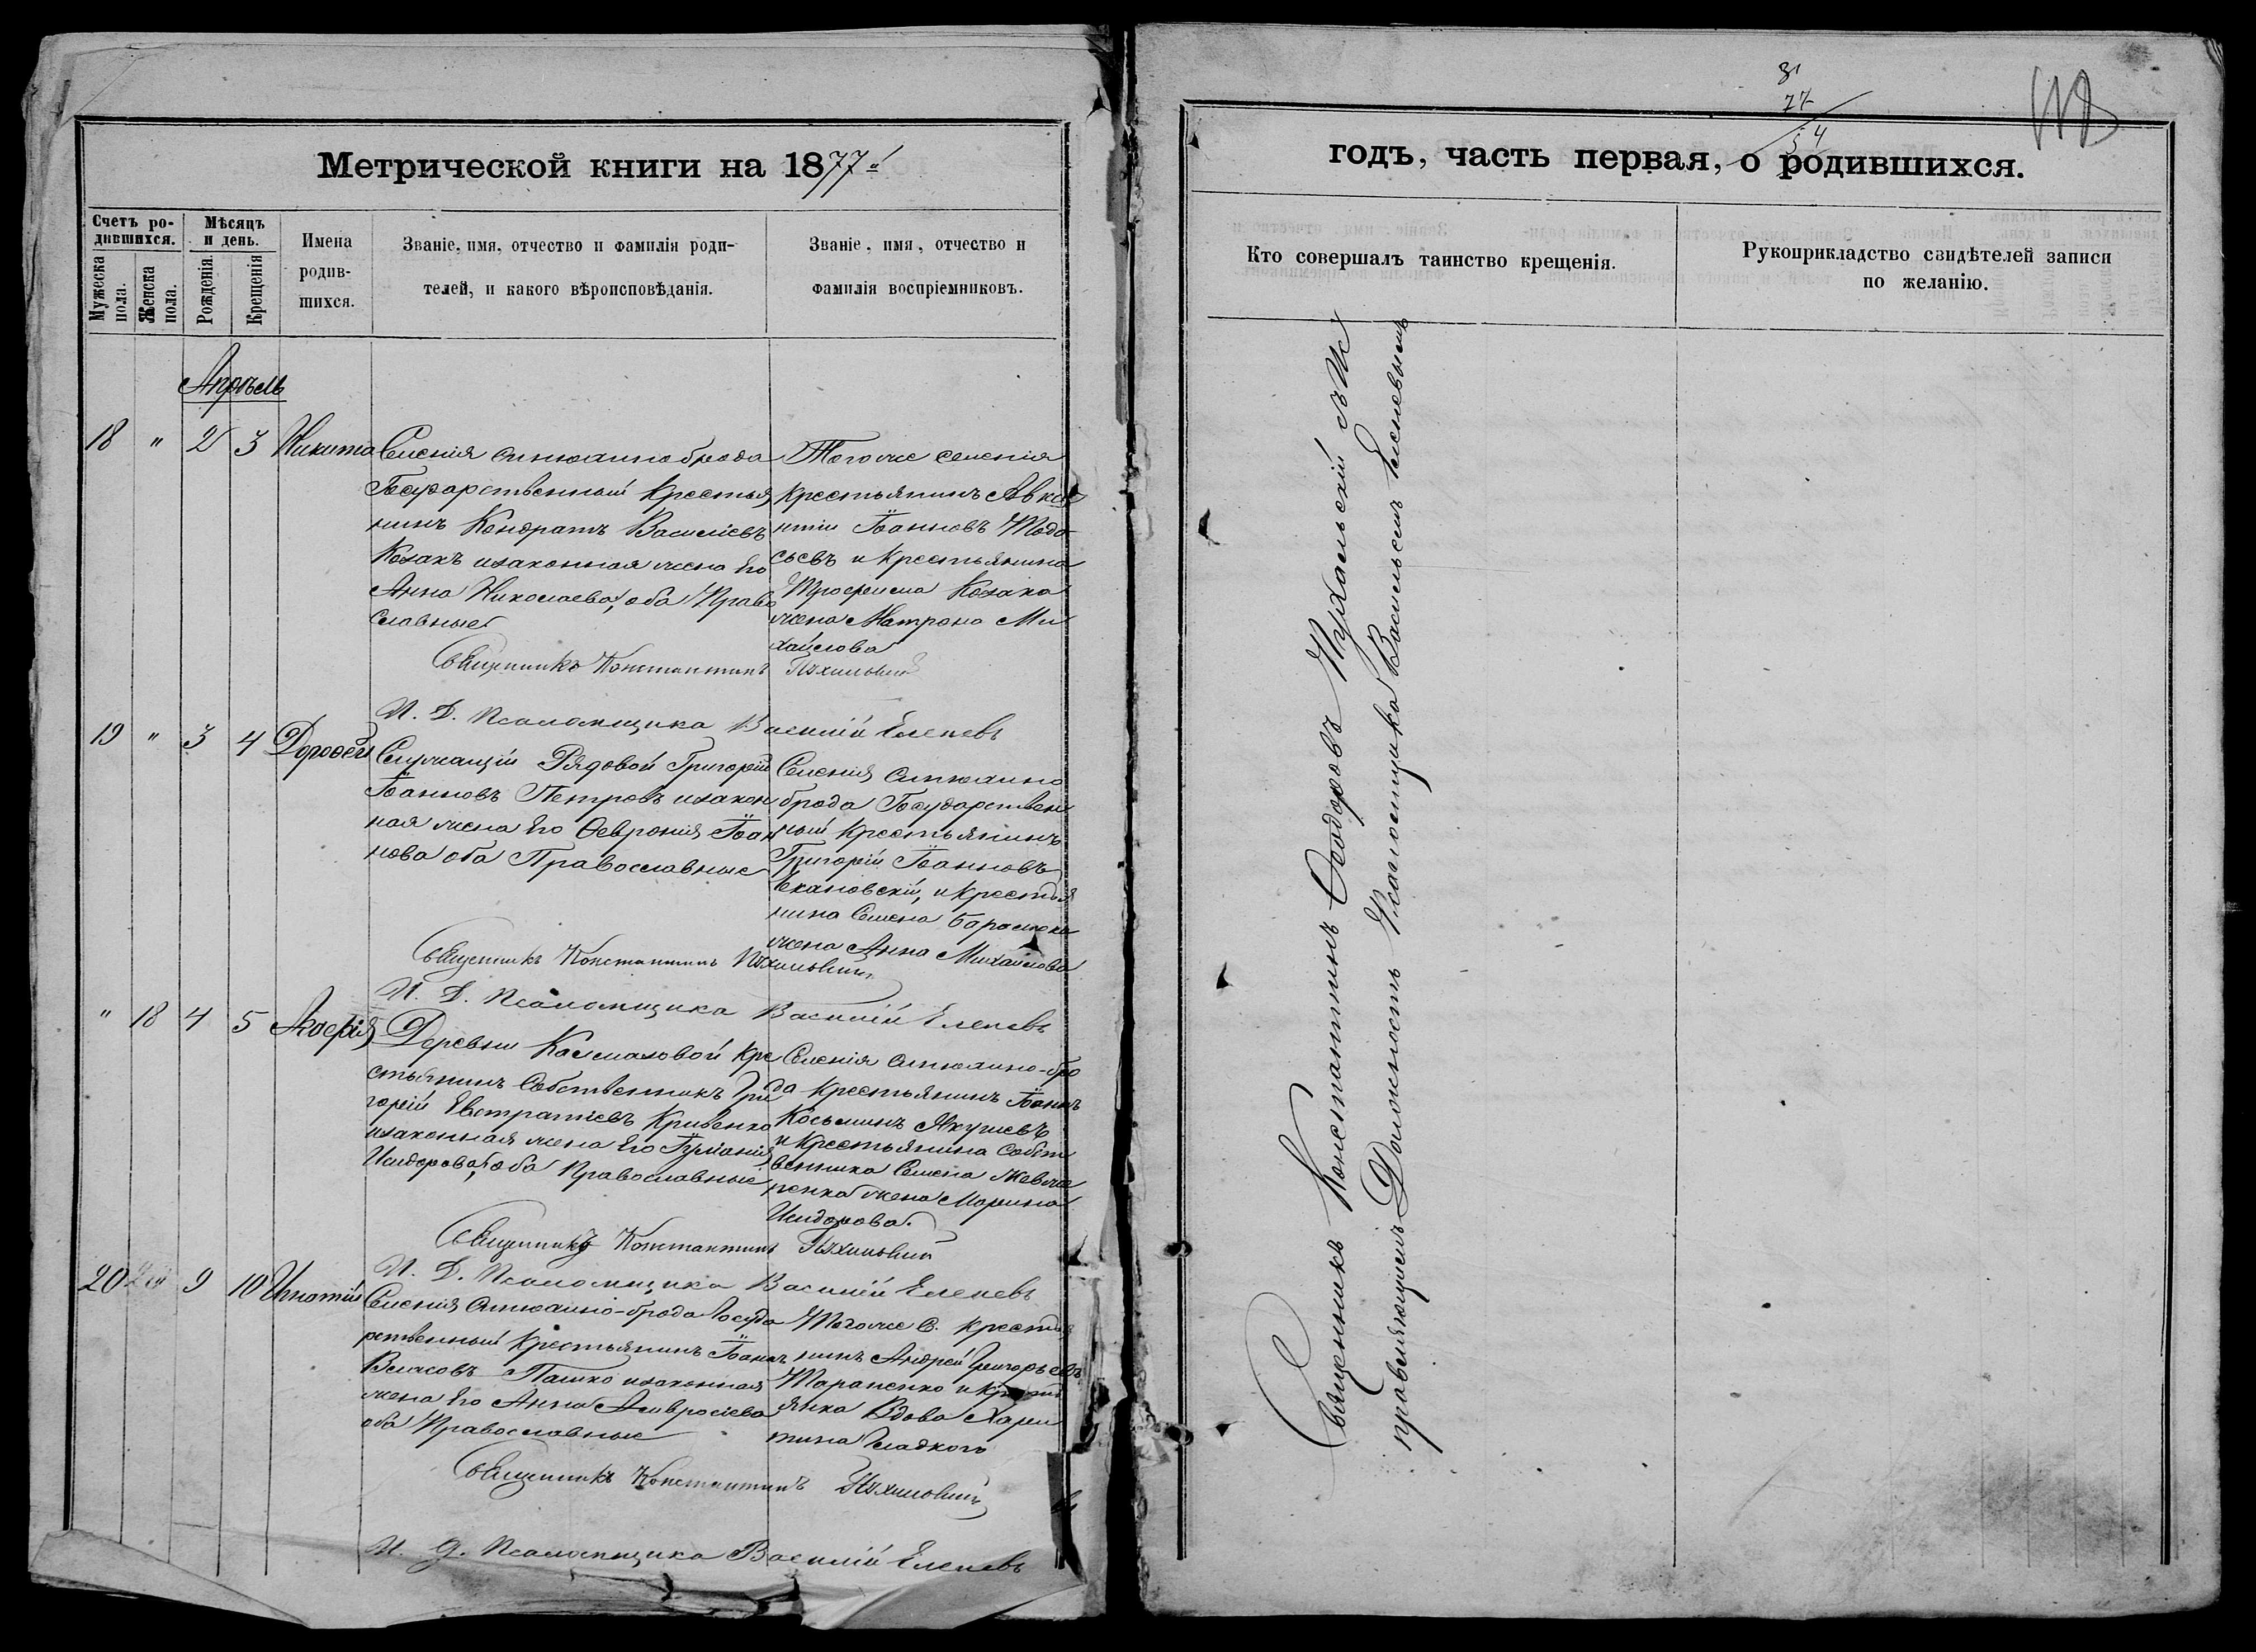 Метрической книги на 1877й
Счетъ ро-
дившихся.
Мѣсяцъ
и день.
Мужеска
пола.
Женска
пола.
Рожденія.
Крещенія
Имена
родив-
шихся.
Званіе, имя, отчество и фамилія роди-
телей, и какого вѣроисповѣданія.
Званіе, имя, отчество и
фамилія воспріемниковъ.
Апрѣль
18 " 2 3 Никита
Селенія Синюхино брода
Государственный Крестья
нинъ Кондратъ Василіевъ
Козакъ и законная жена Его
Анна Николаева, оба Право
славные
Того же селенія
крестьянинъ
Іоанновъ
и крестьянина
Трофима Козака
жена Матрона Ми
хайлова
Священникъ Константинъ
И. Д. Псаломщика Василій
19 " 3 4 Дороѳей
Служащій Рядовой Григорій
Іоанновъ Петровъ и закон
ная жена Его Ѳевронія Іоан
нова оба Православные
Селенія Синюхино
брода Государствен
ный крестьянинъ
Григорій Іоанновъ
и крестья
нина Семена
жена Анна Михайлова
Священникъ Константинъ
И. Д. Псаломщика Василій
" 18 4 5
Деревни Калмазовой Кре
стьянинъ Собственникъ Гри
горій Евстратіевъ Кривенко
и законная жена Его Іуліанія
Исидорова, оба Православные
Селенія Синюхино-бро
да крестьянинъ Іоаннъ
Косьминъ Якушевъ
и крестьянина Собст
венника Семена
жена Марина
Исидорова.
Священникъ Константинъ
И. Д. Псаломщика Василій
20 9 10 Игнатій
Селенія Синюхино-брода Госуда
рственный Крестьянинъ Іоаннъ
Власовъ Пашко и законная
жена Его Анна Амвросіева
оба Православные
Того же С. крестья
нинъ Андрей Григорьевъ
Тараненко и крестья
янка Вдова Хари
тина Гладкого
Священникъ Константинъ
И. Д. Псаломщика Василій
77
54
годъ, часть первая, о родившихся.
Кто совершалъ таинство крещенія.
Рукоприкладство свидѣтелей записи
по желанію.
Священникъ Константинъ Ѳеодоровъ
правляющимъ Должность Псаломщика Васильемъ